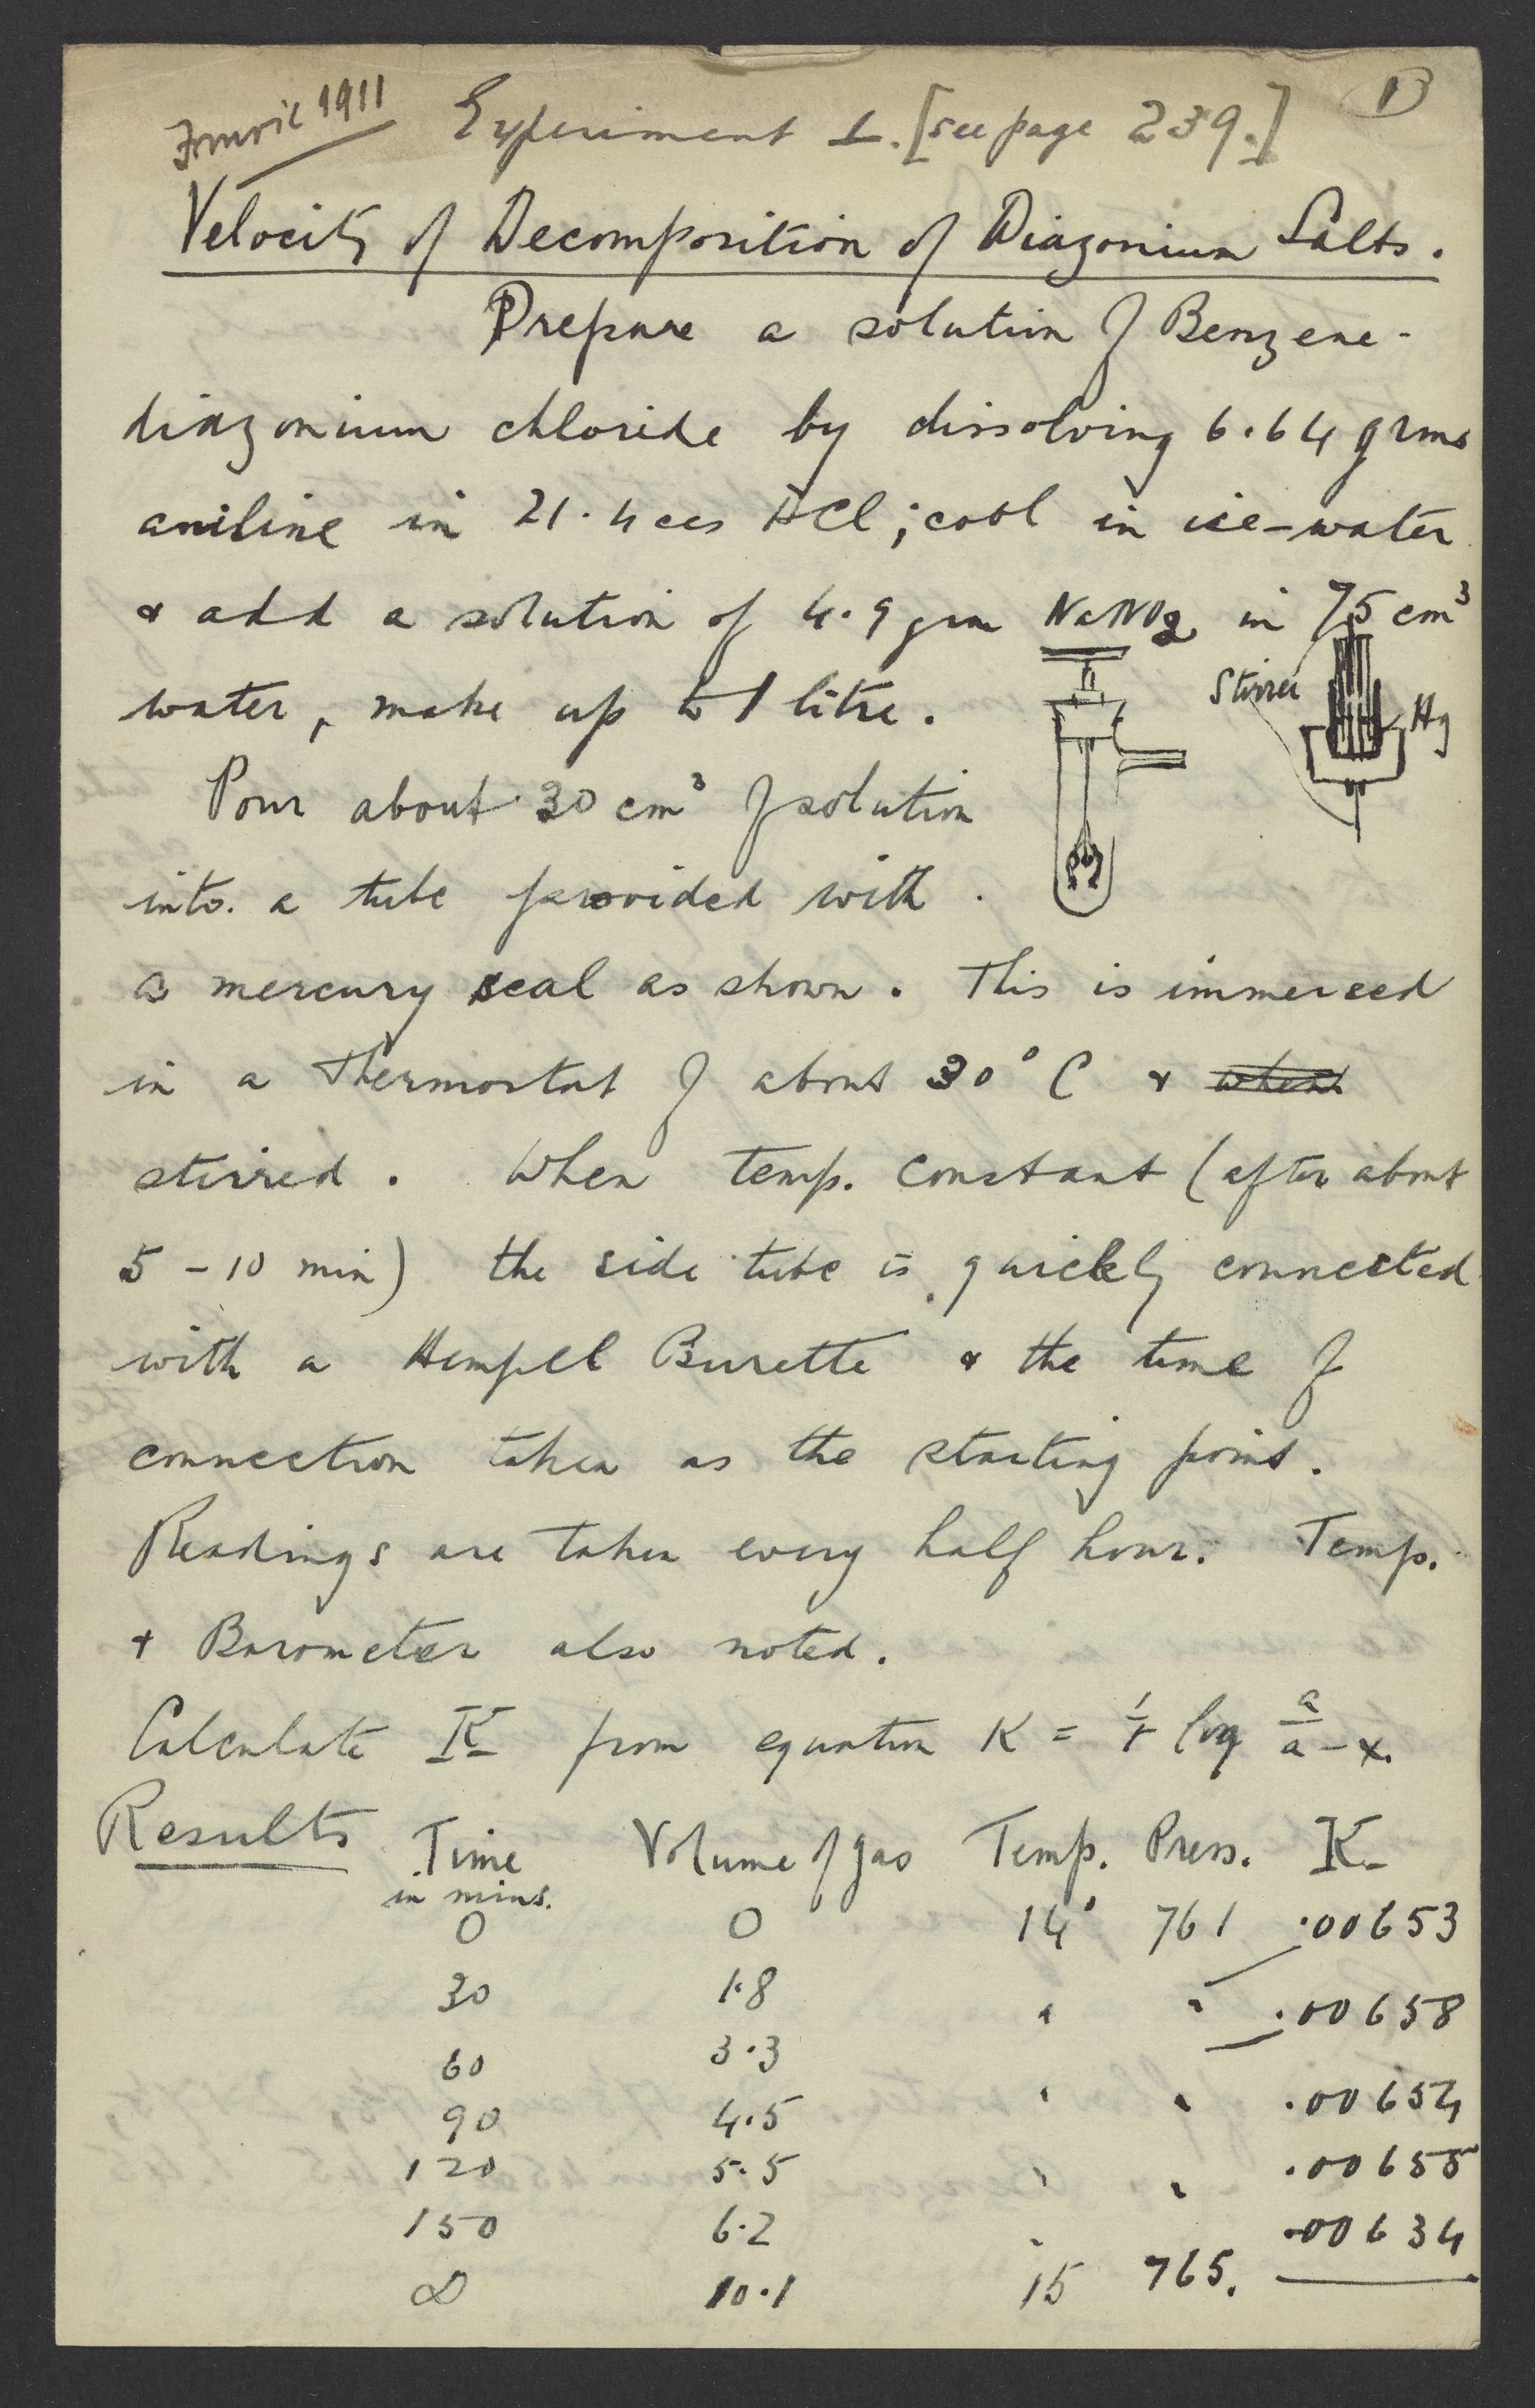 1911
1
Experiment 1. [see page 239.]
Velocity of Decomposition of Diazonium Salts.
Prepare a solution of Benzene-
diazonium chloride by dissolving 6.64 grms
aniline in 21.4 ccs HCl; cool in ice-water
& add a solution of 4.9 grm NaNO2 in 75 cm³
water, make up to 1 litre.
Stirrer
Hg
Pour about 30 cm³ of solution
into a tube provided with
a mercury seal as shown. This is immersed
in a Thermostat of about 30° C & when
stirred. When temp. constant (after about
5 - 10 min) the side tube is quickly connected
with a Hempel Burette & the time of
connection taken as the starting point.
Readings are taken every half hour. Temp.
+ Barometer also noted.
Calculate K from equation K = 1/t log a/a-x.
Results Time in mins. Volume of gas Temp. Press. K
0 0 14° 761 .00653
30 1.8 " " .00658
60 3.3 " " .00654
90 4.5 " " .00655
120 5.5 " .00634
150 6.2
∞ 10.1 15 765.